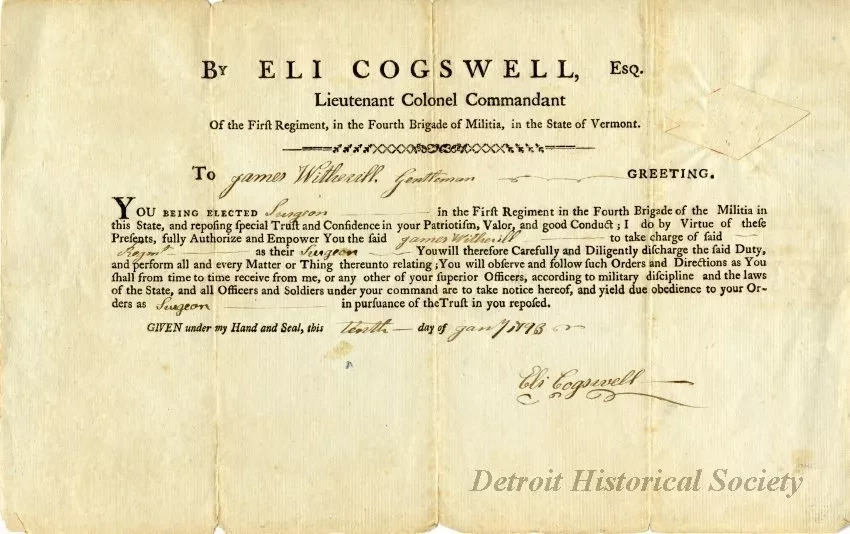 By ELI COGSWELL, Esq.
Lieutenant Colonel Commandant
Of the Firſt Regiment, in the Fourth Brigade of Militia, in the State of Vermont.
To James Witherill. Gentleman GREETING.
YOU BEING ELECTED Surgeon in the Firſt Regiment in the Fourth Brigade of the Militia in
this State, and repoſing ſpecial Truſt and Confidence in your Patriotiſm, Valor, and good Conduct; I do by Virtue of theſe
Preſents, fully Authorize and Empower You the ſaid James Witherill to take charge of ſaid
Regmt as their Surgeon You will therefore Carefully and Diligently diſcharge the ſaid Duty,
and perform all and every Matter or Thing thereunto relating; You will obſerve and follow ſuch Orders and Directions as You
ſhall from time to time receive from me, or any other of your ſuperior Officers, according to military diſcipline and the laws
of the State, and all Officers and Soldiers under your command are to take notice hereof, and yield due obedience to your Or-
ders as Surgeon in purſuance of the Truſt in you repoſed.
GIVEN under my Hand and Seal, this tenth day of Jany 1793
Eli Cogswell
Detroit Historical Society